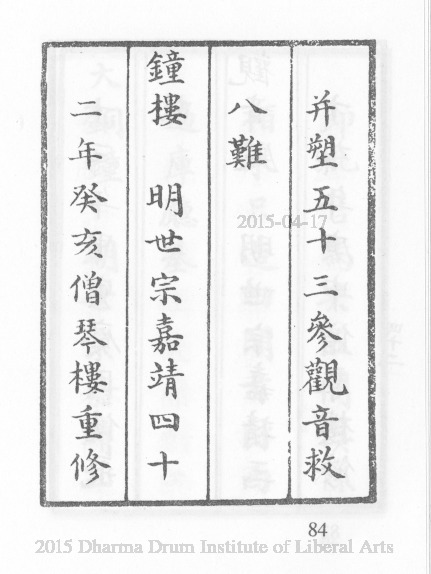 并塑五十三參觀音救
八難
鐘樓 明世宗嘉靖四十
二年癸亥僧琴樓重修
2015-04-17
84
2015 Dharma Drum Institute of Liberal Arts